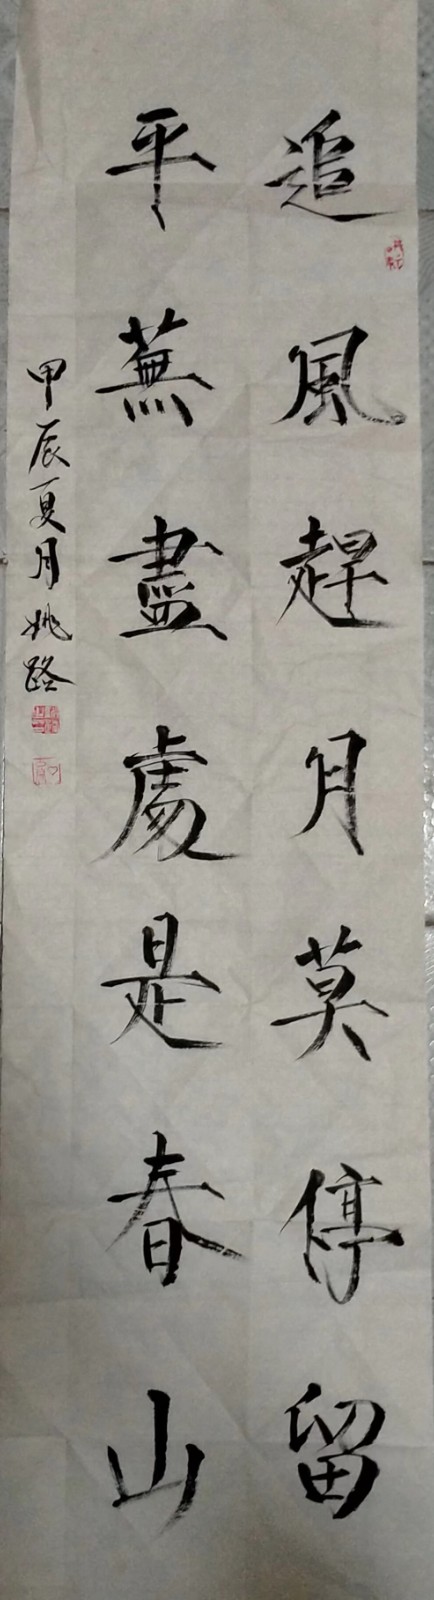 追風趕月莫停留
平蕪盡處是春山
甲辰夏月姚路